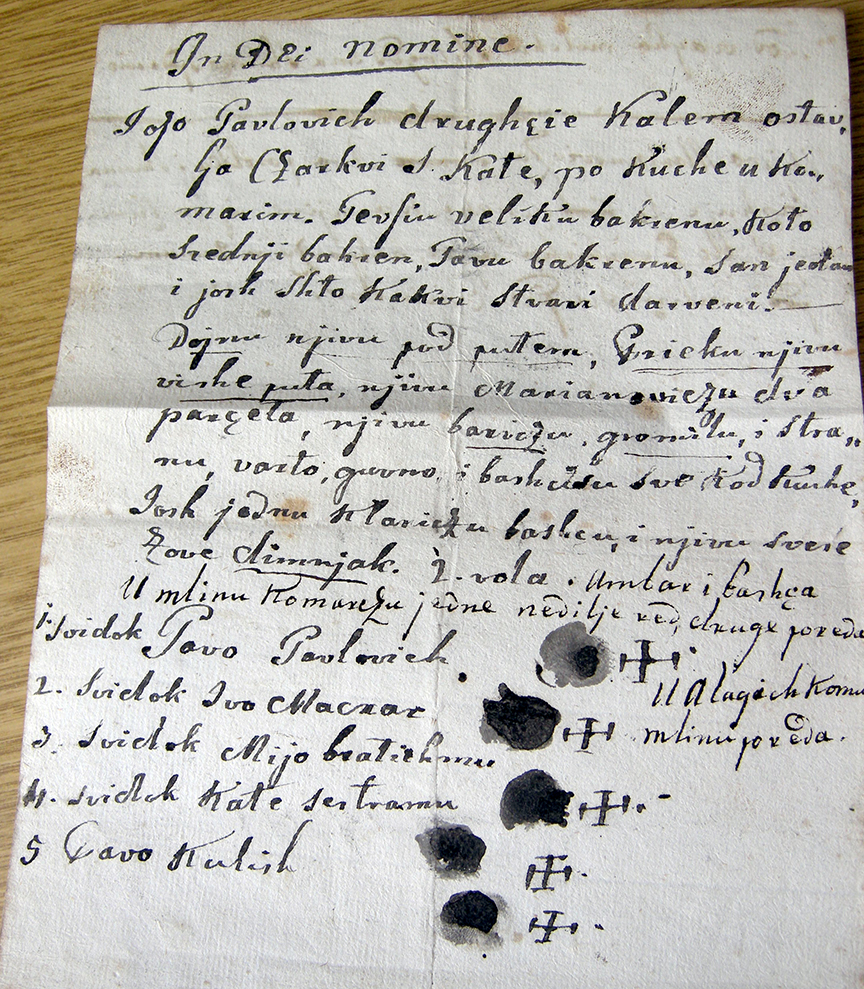 In Dei nomine.
Iojo Pavlovich drughęie Kalem ostav,
lja Czarkvi S. Kate, po Kuche u Ko,,
marim. Tevsiu veliku bakrenu, Koto
Srednji bakren, Tavu bakrenu, San jedan
i josh Shto Kakvi Stvari darveni.
Dojnu njivu pod putem, Gricku njivu
vishe puta, njivu Marianovięzu dva
parçeta, njivu barięzu, gromilu, i Stra,,
nu, varto, guvno, i bashęsu sve Kod Kuche,
Josh jednu Klarięzu bashęu, i njivu svese
Zove dimnjak. 2. vola. Ambar i bashęa
U mlinu Komaręzu jedne nedilje red, druge poreda
1. Svidok Pavo Pavlovich.
U Alagich Komu
2. Svidok Ivo Maczar
mlinu poreda.
3. Svidok Mijo bratichmu
4. Svidok Kate sestramu
5 Pavo Kulish